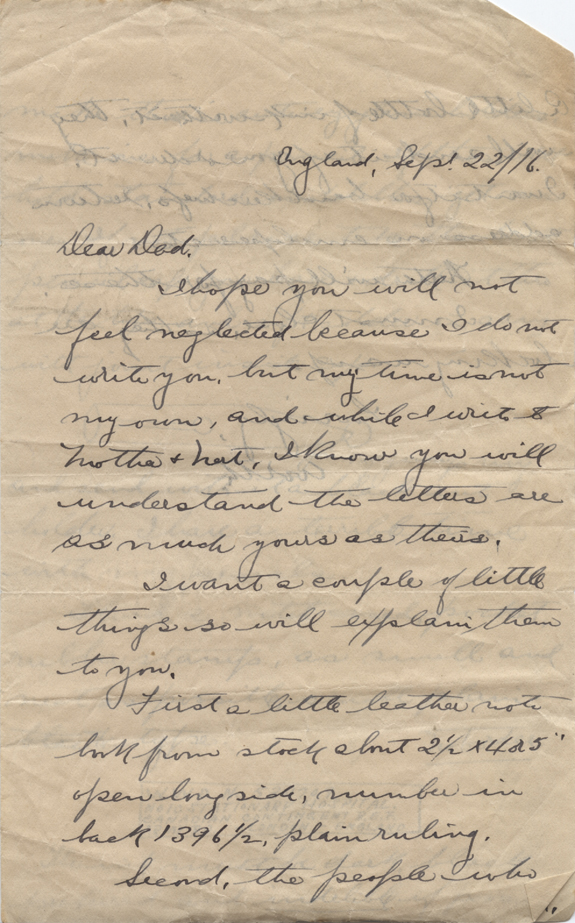 England, Sept. 22/16.
Dear Dad.
I hope you will not
feel neglected because I do not
write you, but my time is not
my own, and while I write to
Mother & Nat, I know you will
understand the letters are
as much yours as theirs.
I want a couple of little
things so will explain them
to you.
First a little leather note
book from stock about 2½ x 4 or 5"
open long side, number in
back 1396½, plain ruling.
Second, the people who